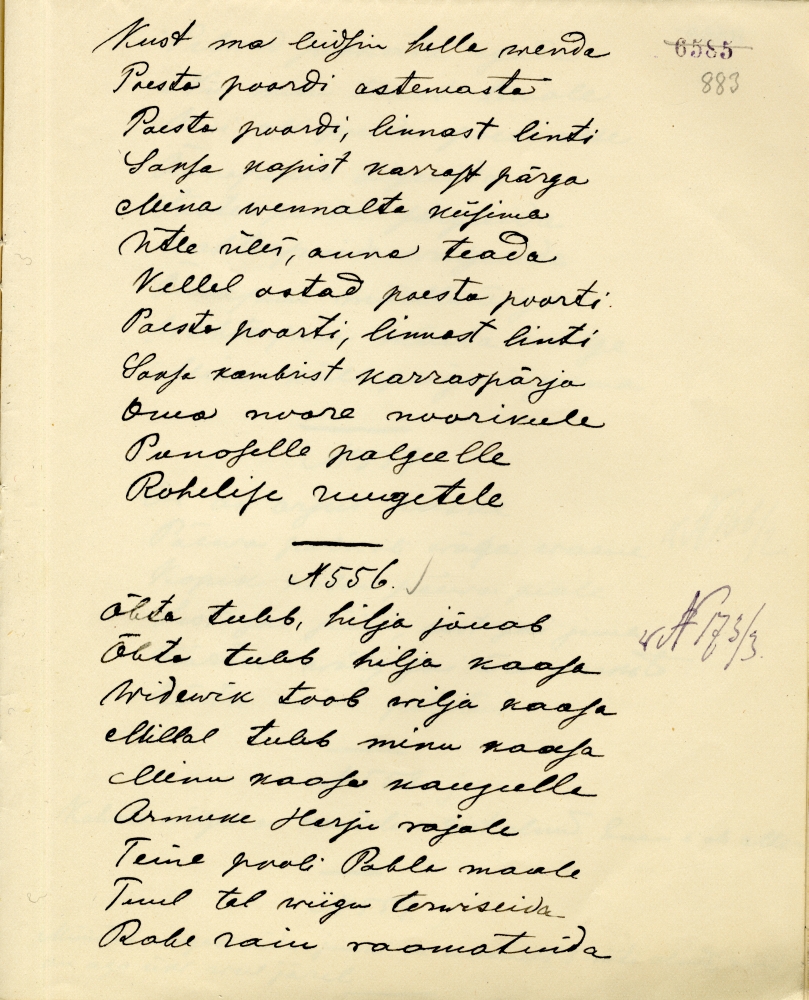 Kust ma leidsin hella wenda
6585
883
Poest poordi astemasta
Poesta poordi, linnast linti
Saksa kapist karrast pärga
Mina wennalta küsima
Ütle üles, anna teada
Kellel ostad poesta poorti
Poesta poorti, linnast linti
Saksa kambrist karraspärja
Oma noore noorikule
Punoselle palgeelle
Rohelise ruugetele
N 556.
Õhta tuleb, hilja jõuab
N 173/3
Õhta tuleb hilja kaasa
Widewik toob wilja kaasa
Millal tuleb minu kaasa
Minu kaasa kaugeelle
Armuke Harju rajale
Teine pooli Pahla maale
Tuul tal wiigu terwiseida
Rahe raiu raamatuida